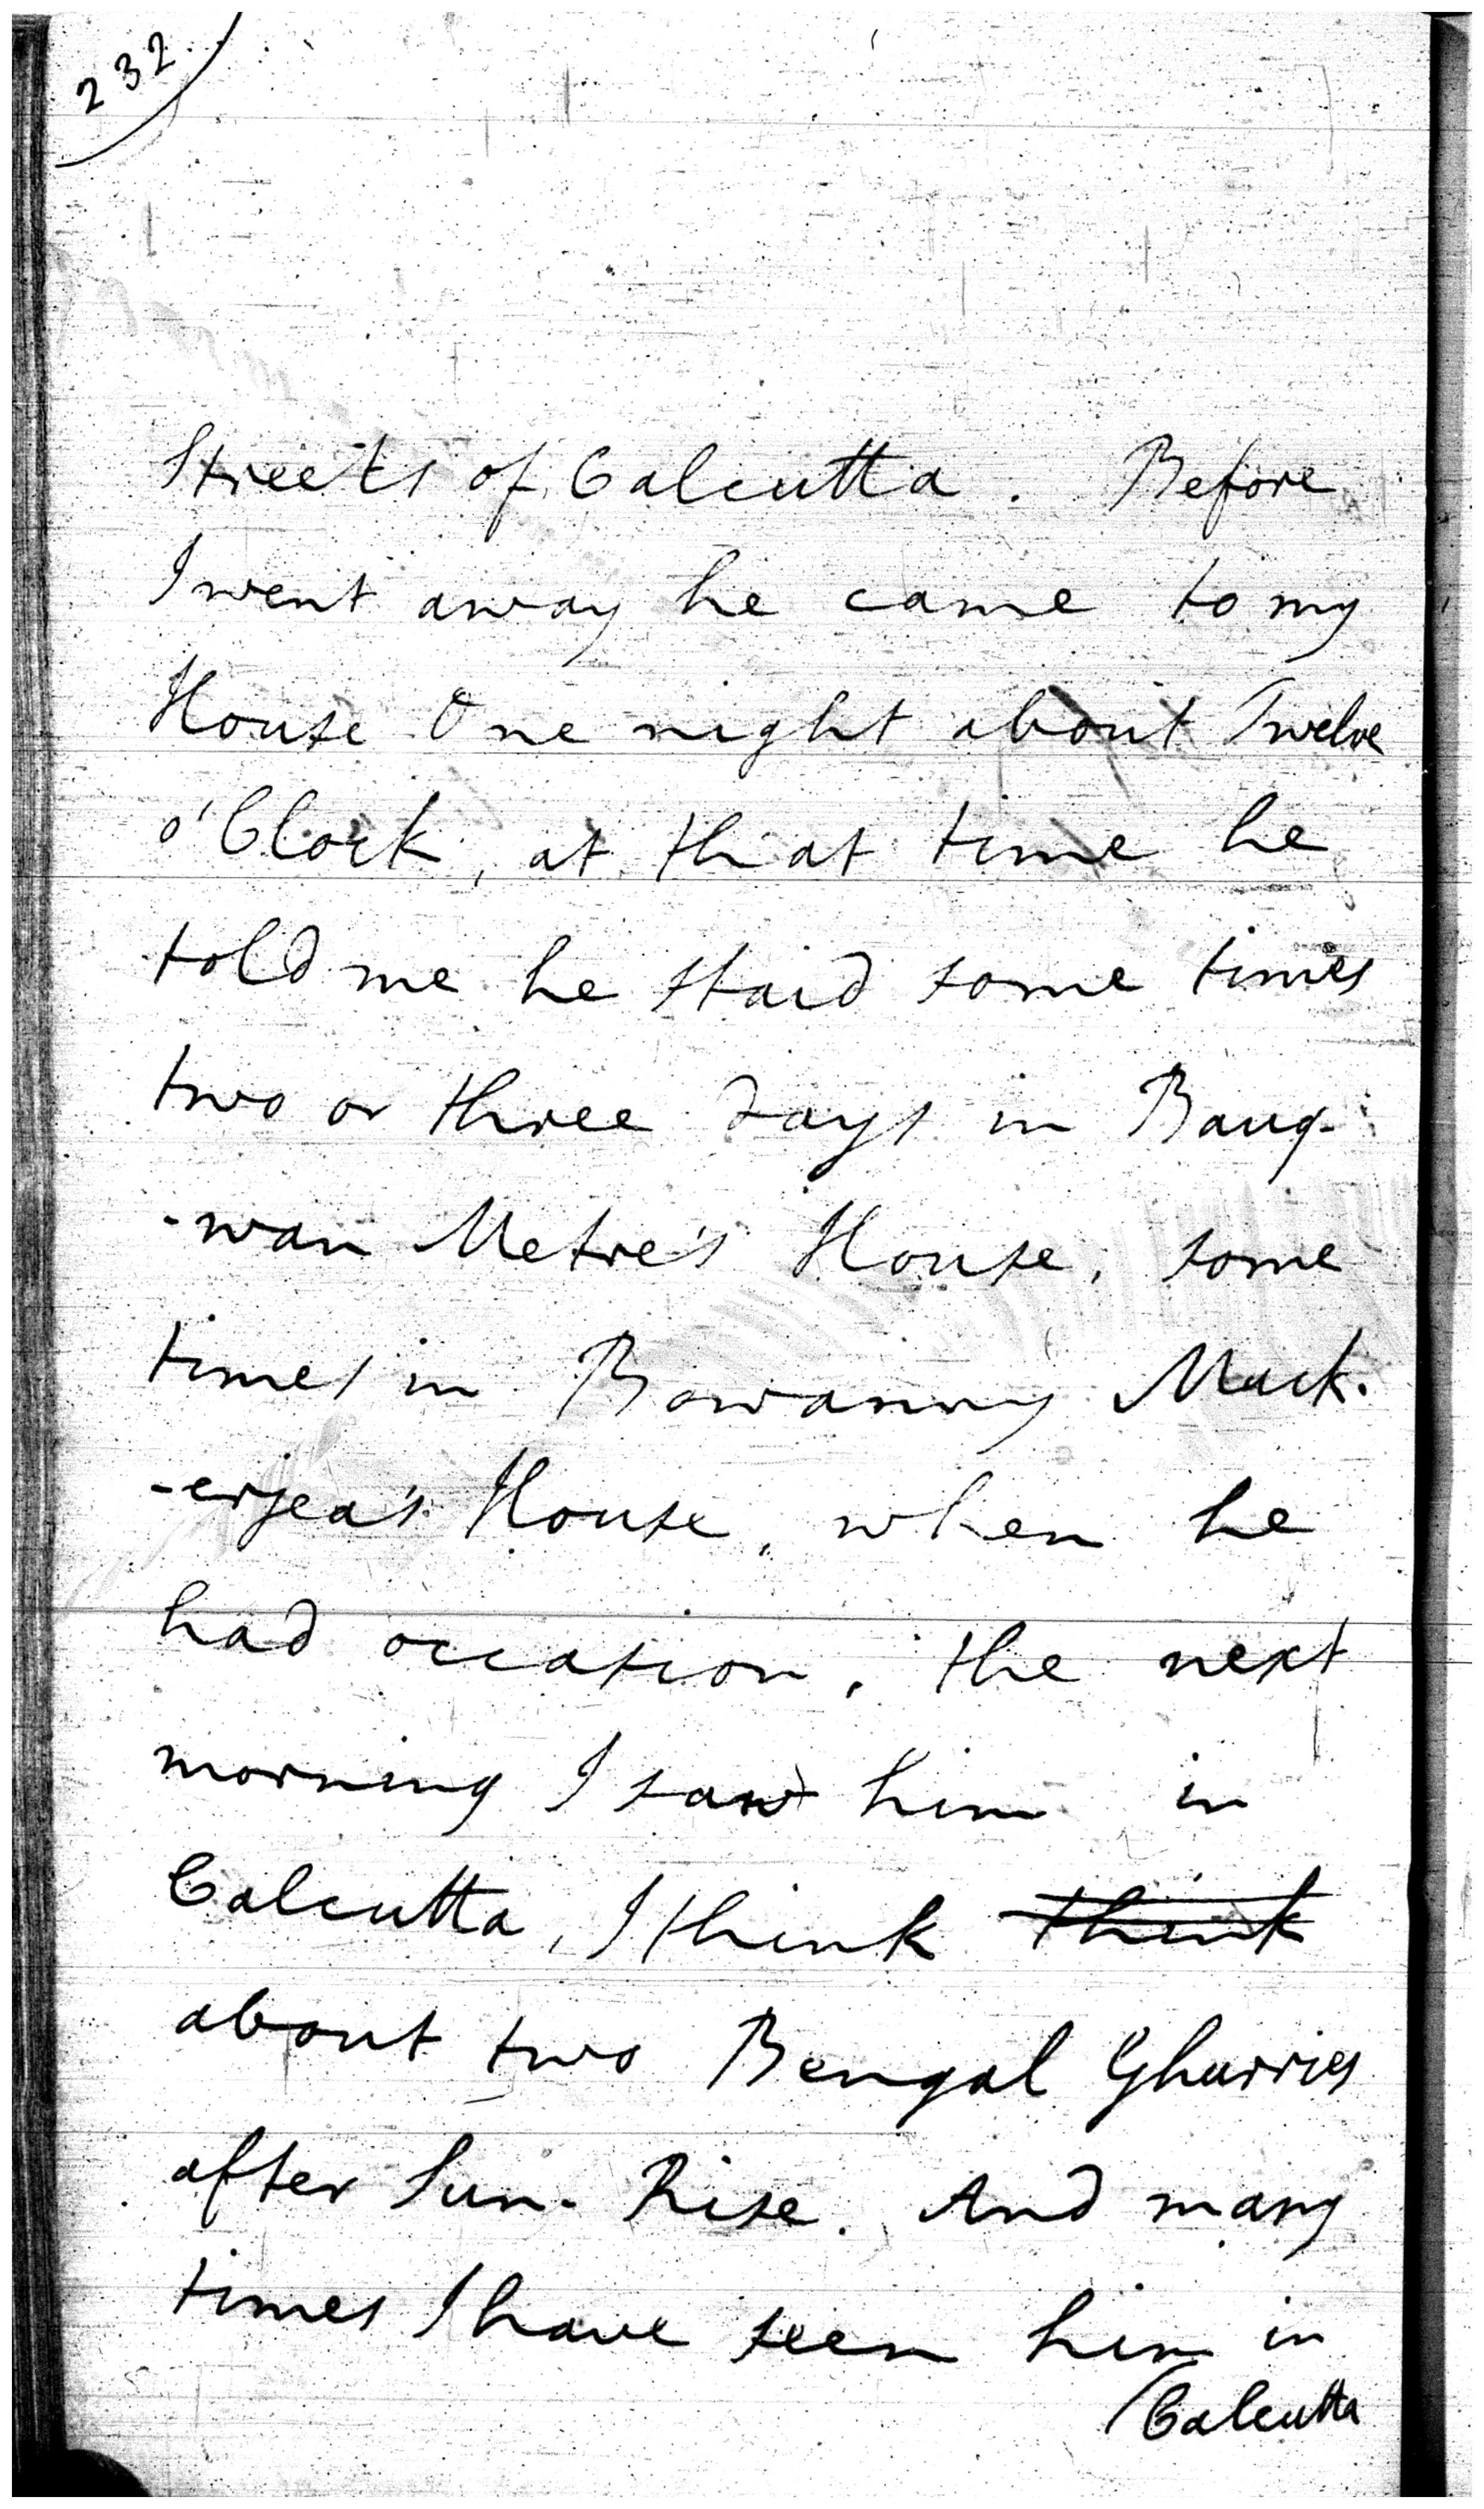 232
Streets of Calcutta. Before
I went away he came to my
House One night about Twelve
o'Clock, at that time he
told me he staid some times
two or three days in Baug-
-wan Metre's House, some
times in Bowanny Muck-
-erjea's House, when he
had occasion, the next
morning I saw him in
Calcutta, I think think
about two Bengal Ghurries
after Sun-Rise. And many
times I have seen him in
Calcutta